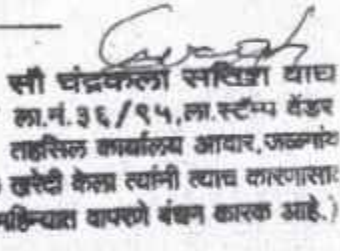 सौ चंद्रकला सतिश वाघ
ला.नं.३६/९५,ला.स्टॅम्प वेंडर
तहसिल कार्यालय आवार,जळगांव
खरेदी केला त्यांनी त्याच कारणासा
महिन्यात वापरणे बंधन कारक आहे.)